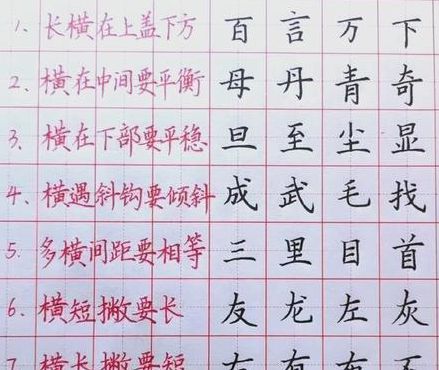 1、长横在上盖下方 百 言 万 下
2、横在中间要平衡 母 丹 青 奇
3、横在下部要平稳 旦 至 尘 显
4、横遇斜钩要倾斜 成 武 毛 找
5、多横间距要相等 三 里 目 首
6、横短撇要长 友 龙 左 灰
7、横长撇要短 右 有 布 不